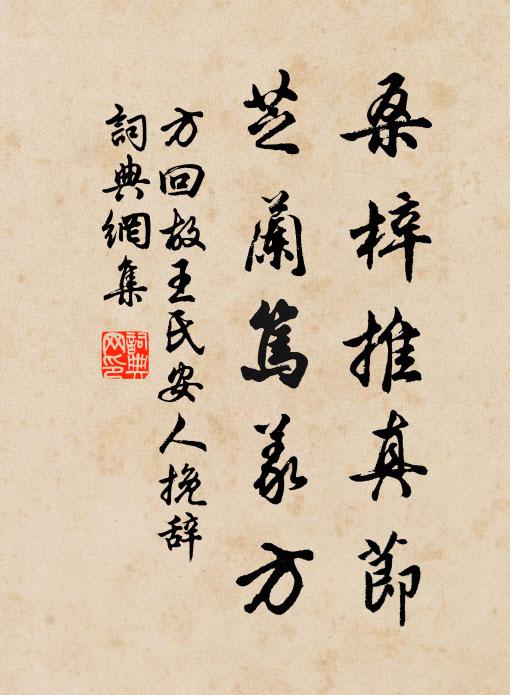 桑梓推真節
芝蘭篤義方
方回故王氏安人挽辞
詞典網集
詞典网印